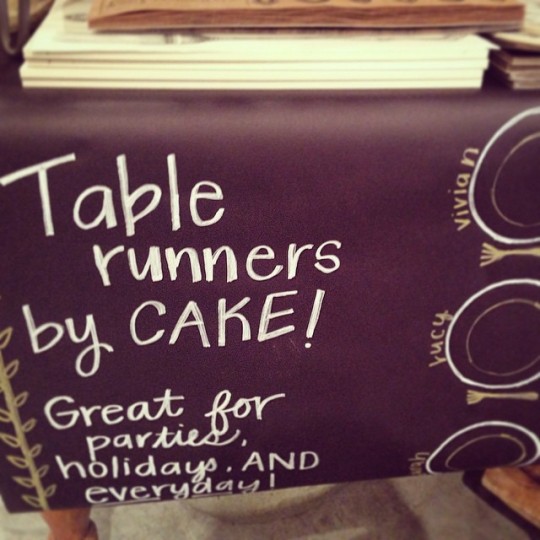 Table
runners
by CAKE!
Great for
parties,
holidays. AND
everyday!
vivian
rucy